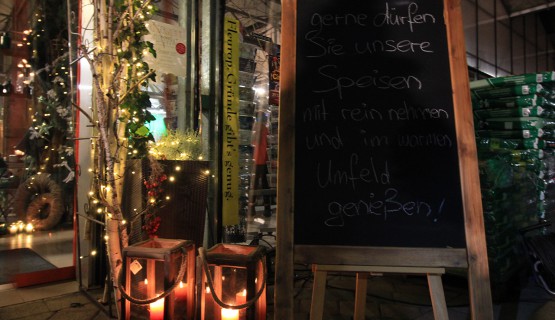 gerne dürfen
Sie unsere
Speisen
mit rein nehmen
und im warmen
Umfeld
genießen!
Fleurop. Gründe gibt's genug.